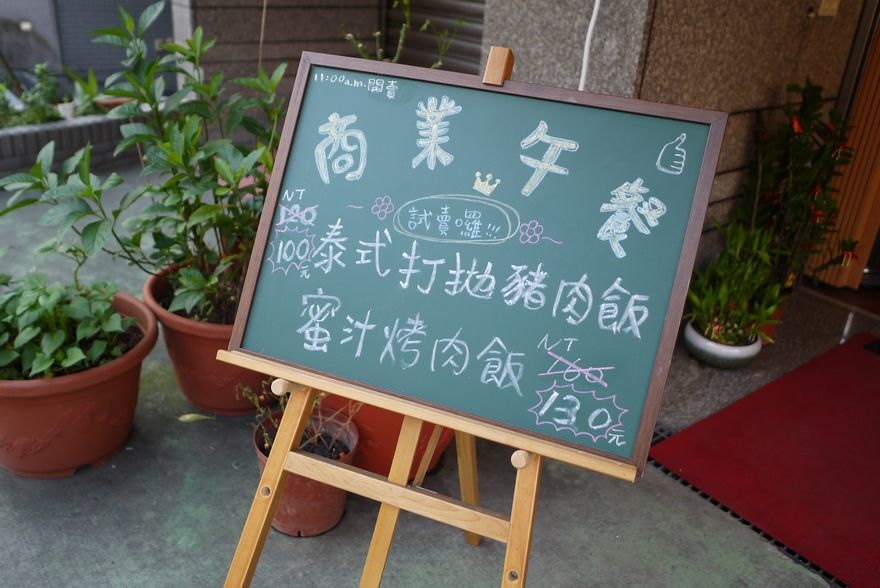 11:00a.m.開賣
商業午餐
試賣囉!!!
NT
120
100元
泰式打拋豬肉飯
蜜汁烤肉飯
NT
160
130元